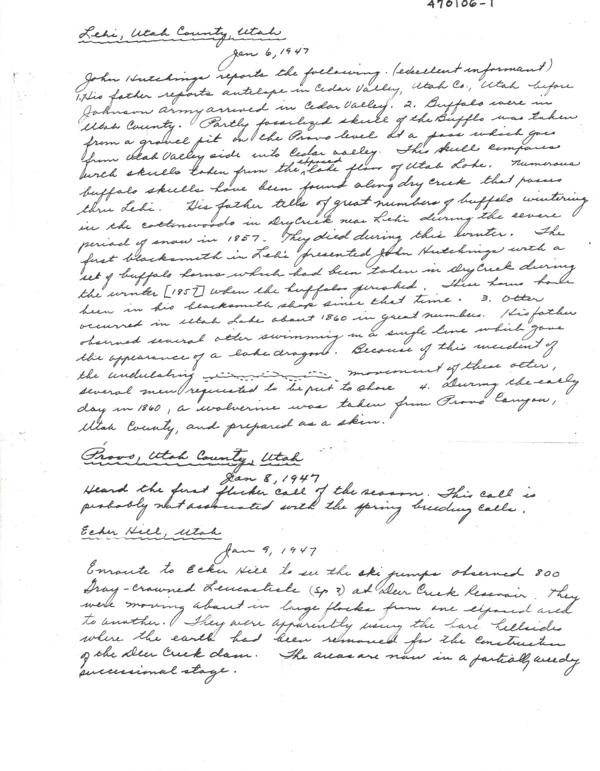 470106-1
Lehi, Utah County, Utah
Jan 6, 1947
John Hutchings reports the following. (excellent informant)
1. His father reports antelope in Cedar Valley, Utah Co., Utah before
Johnson Army arrived in Cedar Valley. 2. Buffalo were in
Utah County. Partly fossilized skull of the Bufflo was taken
from a gravel pit on the Provo level at a pass which goes
from Utah Valley side into Cedar Valley. This skull compares
with skulls taken from the exposed lake floor of Utah Lake. Numerous
buffalo skulls have been found along dry creek that passes
thru Lehi. His father tells of great numbers of buffalo wintering
in the cottonwoods in Dry Creek near Lehi during the severe
period of snow in 1857. They died during this winter. The
first blacksmith in Lehi presented John Hutchings with a
set of buffalo horns which had been taken in Dry Creek during
the winter [1857] when the buffalo perished. These horns have
been in his blacksmith shop since that time. 3. Otter
occurred in Utah Lake about 1860 in great numbers. His father
observed several otter swimming in a single line which gave
the appearance of a lake dragon. Because of this incident of
the undulating movement of these otter,
several men requested to be put to shore 4. During the early
day in 1860, a wolverine was taken from Provo Canyon,
Utah County, and prepared as a skin.
Provo, Utah County, Utah
Jan 8, 1947
Heard the first flicker call of the season. This call is
probably not associated with the spring breeding calls.
Ecker Hill, Utah
Jan 9, 1947
Enroute to Ecker Hill to see the ski jumps observed 800
Gray-crowned Leucosticte (sp ?) at Deer Creek Reservoir. They
were moving about in large flocks from one exposed area
to another. They were apparently using the bare hillsides
where the earth had been removed for the construction
of the Deer Creek dam. The areas are now in a partially weedy
successional stage.